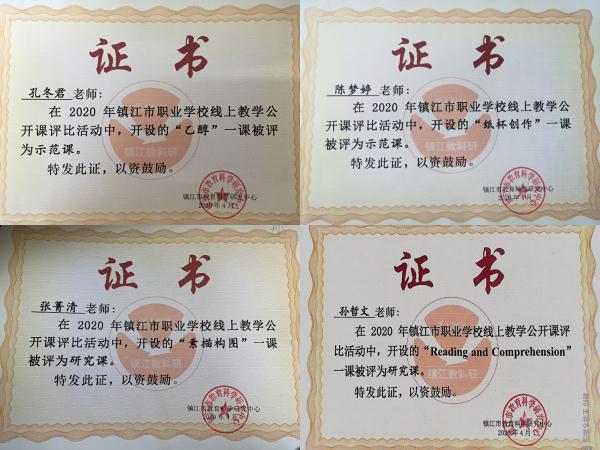 证书
孔冬君 老师：
在 2020 年镇江市职业学校线上教学公
开课评比活动中，开设的“乙醇”一课被评
为示范课。
特发此证，以资鼓励。
镇江教科研
镇江市教育科学研究中心
2020年4月
证书
陈梦婷 老师：
在 2020 年镇江市职业学校线上教学公
开课评比活动中，开设的“纸杯创作”一课
被评为示范课。
特发此证，以资鼓励。
镇江教科研
镇江市教育科学研究中心
2020年4月
证书
张菁清 老师：
在 2020 年镇江市职业学校线上教学公
开课评比活动中，开设的“素描构图”一课
被评为研究课。
特发此证，以资鼓励。
镇江教科研
镇江市教育科学研究中心
2020年4月
证书
孙哲文 老师：
在 2020 年镇江市职业学校线上教学公开课评
比活动中，开设的“Reading and Comprehension”
一课被评为研究课。
特发此证，以资鼓励。
镇江教科研
镇江市教育科学研究中心
2020年4月